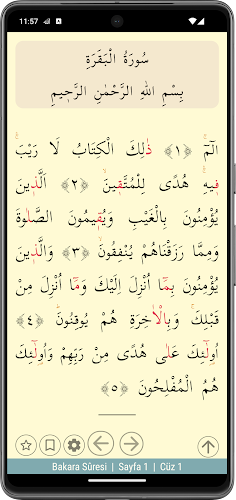 11:57
سُورَةُ الْبَقَرَةِ
بِسْمِ اللهِ الرَّحْمٰنِ الرَّحٖيمِ
الٓمٓۚ ﴿١﴾ ذٰلِكَ الْكِتَابُ لَا رَيْبَۚ
فٖيهِۚ هُدًى لِلْمُتَّقٖينَۙ ﴿٢﴾ اَلَّذٖينَ
يُؤْمِنُونَ بِالْغَيْبِ وَيُقٖيمُونَ الصَّلٰوةَ
وَمِمَّا رَزَقْنَاهُمْ يُنْفِقُونَۙ ﴿٣﴾ وَالَّذٖينَ
يُؤْمِنُونَ بِمَٓا اُنْزِلَ اِلَيْكَ وَمَٓا اُنْزِلَ مِنْ
قَبْلِكَۚ وَبِالْاٰخِرَةِ هُمْ يُوقِنُونَۜ ﴿٤﴾
اُو۬لٰٓئِكَ عَلٰى هُدًى مِنْ رَبِّهِمْ وَاُو۬لٰٓئِكَ
هُمُ الْمُفْلِحُونَ ﴿٥﴾
Bakara Sûresi | Sayfa 1 | Cüz 1